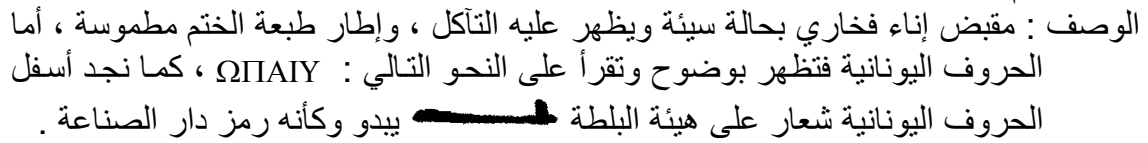 الوصف : مقبض إناء فخاري بحالة سيئة ويظهر عليه التآكل ، وإطار طبعة الختم مطموسة ، أما
الحروف اليونانية فتظهر بوضوح وتقرأ على النحو التالي : ΩΠΑΙΥ ، كما نجد أسفل
الحروف اليونانية شعار على هيئة البلطة يبدو وكأنه رمز دار الصناعة .